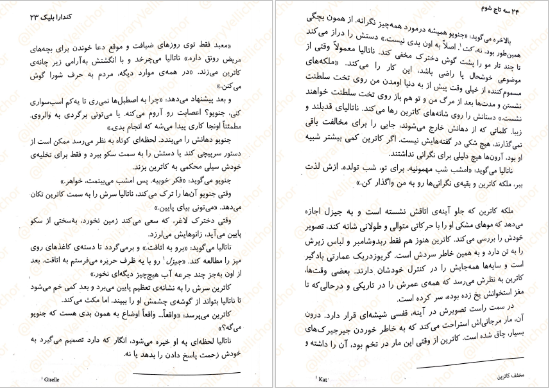 ۲۴ سه تاج شوم
بالاخره می‌گوید: «جنویو همیشه درمورد همه‌چیز نگرانه. از همون بچگی
همین‌طور بود. نه، کت¹. اصلاً به اون بدی نیست.» دستش را دراز می‌کند
تا چند تار مو را پشت گوش دخترک مخفی کند. ناتالیا معمولاً وقتی از
موضوعی خوشحال یا راضی باشد، این کار را می‌کند. «ملکه‌های
مسموم‌کننده از خیلی وقت پیش از به دنیا اومدن من روی تخت سلطنت
نشستن و مدت‌ها بعد از مرگ من و تو هم باز روی تخت سلطنت خواهند
نشست.» دستانش را روی شانه‌های کاترین رها می‌کند. ناتالیای قدبلند و
زیبا. کلماتی که از دهانش خارج می‌شوند، جایی را برای مخالفت باقی
نمی‌گذارند. هیچ شکی در گفته‌هایش نیست. اگر کاترین کمی بیشتر شبیه
او بود، آرون‌ها هیچ دلیلی برای نگرانی نداشتند.
ناتالیا می‌گوید: «امشب شب مهمونیه. برای تو، شب تولده. ازش لذت
ببر، ملکه کاترین و بقیه‌ی نگرانی‌ها رو به من واگذار کن.»
ملکه کاترین که جلو آینه‌ی اتاقش نشسته است و به جیزل اجازه
می‌دهد که موهای مشکی او را با حرکاتی متوالی و طولانی شانه کند، تصویر
خودش را بررسی می‌کند. کاترین هنوز هم فقط ربدوشامبر و لباس زیرش
را به تن دارد و به همین خاطر سردش است. گریوزدریک عمارتی بادگیر
است و سایه‌ها همه‌جایش را در کنترل خودشان دارند. بعضی وقت‌ها،
کاترین به نظرش می‌رسد که همه‌ی عمرش را در تاریکی و درحالی‌که تا
مغز استخوانش یخ زده بوده، سر کرده است.
در سمت راست تصویرش در آینه، قفسی شیشه‌ای قرار دارد. درون
آن، مار مرجانی‌اش استراحت می‌کند که به خاطر خوردن جیرجیرک‌های
بسیار، چاق شده است. کاترین از وقتی این مار در تخم بود، آن را داشته و
مخفف کاترین
¹ Kat
کندارا بلیک ۲۳
«معبد فقط توی روزهای ضیافت و موقع دعا خوندن برای بچه‌های
مریض رونق داره.» ناتالیا می‌چرخد و با انگشتش به‌آرامی زیر چانه‌ی
کاترین می‌زند. «در همه‌ی موارد دیگه، مردم به حرف شورا گوش
می‌کنن.»
و بعد پیشنهاد می‌دهد: «چرا به اصطبل‌ها نمی‌ری تا یه‌کم اسب‌سواری
کنی، جنویو؟ اعصابت رو آروم می‌کنه. یا می‌تونی برگردی به والروی.
مطمئناً اونجا کاری پیدا می‌شه که انجام بدی.»
جنویو دهانش را می‌بندد. لحظه‌ای کوتاه به نظر می‌رسد ممکن است از
دستور سرپیچی کند یا دستش را به سمت سکو ببرد و فقط برای تخلیه‌ی
خودش سیلی محکمی به کاترین بزند.
جنویو می‌گوید: «فکر خوبیه. پس امشب می‌بینمت، خواهر.»
وقتی جنویو آن‌ها را ترک می‌کند، ناتالیا سرش را به سمت کاترین تکان
می‌دهد. «می‌تونی بیای پایین.»
وقتی دخترک لاغر، که سعی می‌کند زمین نخورد، به‌سختی از سکو
پایین می‌آید، زانوهایش می‌لرزد.
ناتالیا می‌گوید: «برو به اتاقت.» و برمی‌گردد تا دسته‌ی کاغذهای روی
میز را مطالعه کند. «جیزل¹ رو با یه ظرف حریره می‌فرستم به اتاقت. بعد
از اون به‌جز چند جرعه آب هیچ‌چیز دیگه‌ای نخور.»
کاترین سرش را به نشانه‌ی تعظیم پایین می‌برد و بعد کمی خم می‌شود
تا ناتالیا بتواند از گوشه‌ی چشمش او را ببیند. اما مکث می‌کند.
کاترین می‌پرسد: «واقعاً... واقعاً اوضاع به همون بدی هست که جنویو
می‌گه؟»
ناتالیا لحظه‌ای به او خیره می‌شود، انگار که دارد تصمیم می‌گیرد به
خودش زحمت پاسخ دادن را بدهد یا نه.
¹ Giselle